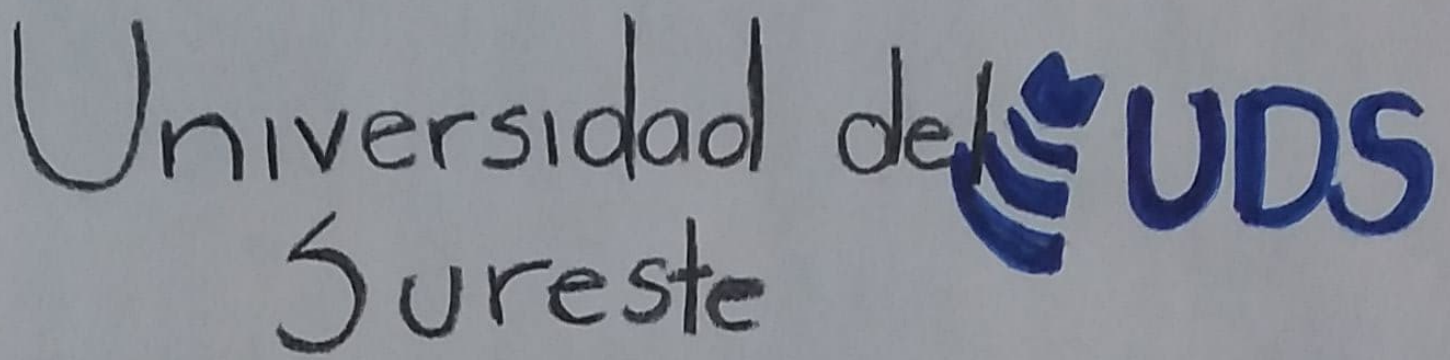 Universidad del UDS
Sureste